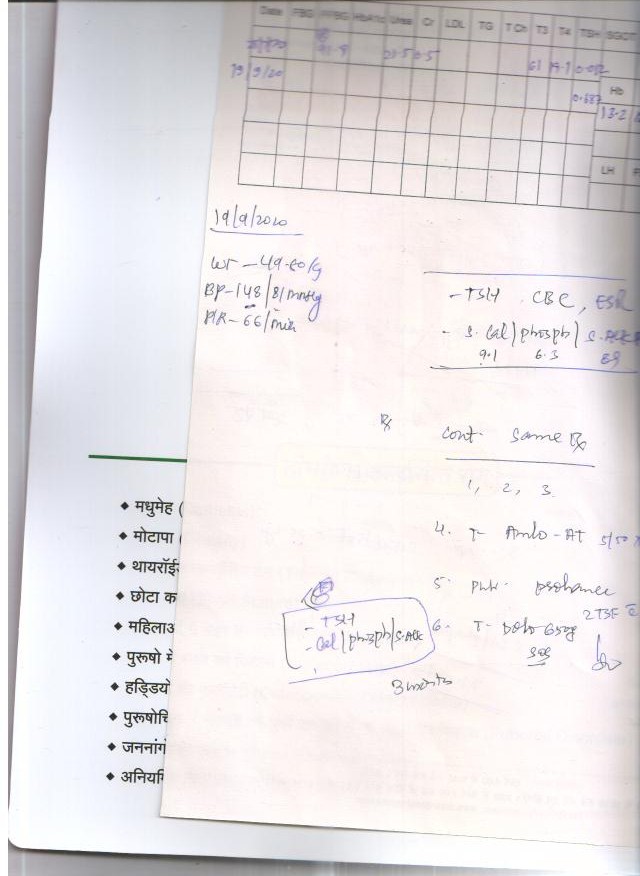 Date FBG PPBG HbA1c Urea Cr LDL TG T Ch T3 T4 TSH SGOT
91.9 21.5 0.5 61 19.1 0.012
19/9/20 0.687
Hb
13.2
LH
19/9/2020
BP-148/81mmHg
P/R-66/min
-TSH CBC, ESR
- S. Cal/phosph/
9.1 6.3
Rx
cont. Same Rx
1, 2, 3.
4. T- Amlo-AT 5/50
5. prohance
2 TSF
6. T- Dolo 650g
sos
- TSH
- Cal/phosph/S.Alk
3 months
◆ मधुमेह (
◆ मोटापा
◆ थायरॉई
◆ छोटा क
◆ महिलाअ
◆ पुरूषो में
◆ हड्डियो
◆ पुरूषोचि
◆ जननांगो
◆ अनियमि